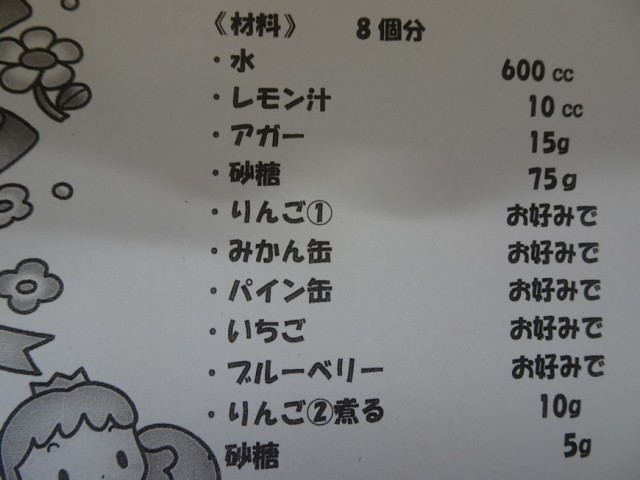 《材料》 8個分
・水 600cc
・レモン汁 10cc
・アガー 15g
・砂糖 75g
・りんご① お好みで
・みかん缶 お好みで
・パイン缶 お好みで
・いちご お好みで
・ブルーベリー お好みで
・りんご②煮る 10g
砂糖 5g